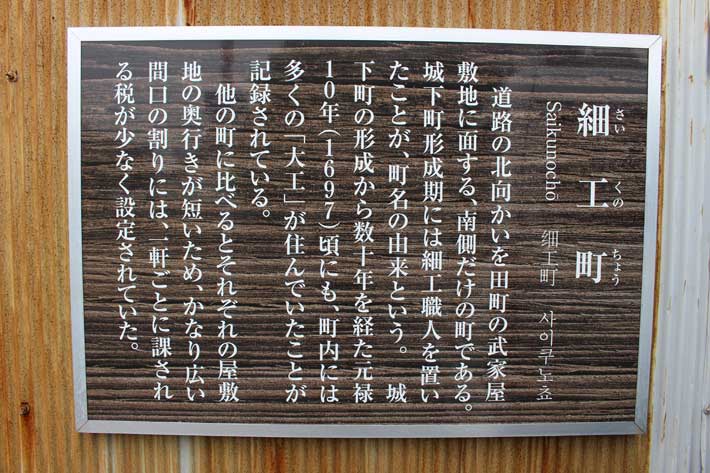 細工町
さい くの ちょう
Saikunochō 细工町 사이쿠노쵸
道路の北向かいを田町の武家屋
敷地に面する、南側だけの町である。
城下町形成期には細工職人を置い
たことが、町名の由来という。 城
下町の形成から数十年を経た元禄
10年(1697)頃にも、町内には
多くの「大工」が住んでいたことが
記録されている。
他の町に比べるとそれぞれの屋敷
地の奥行きが短いため、かなり広い
間口の割りには、一軒ごとに課され
る税が少なく設定されていた。